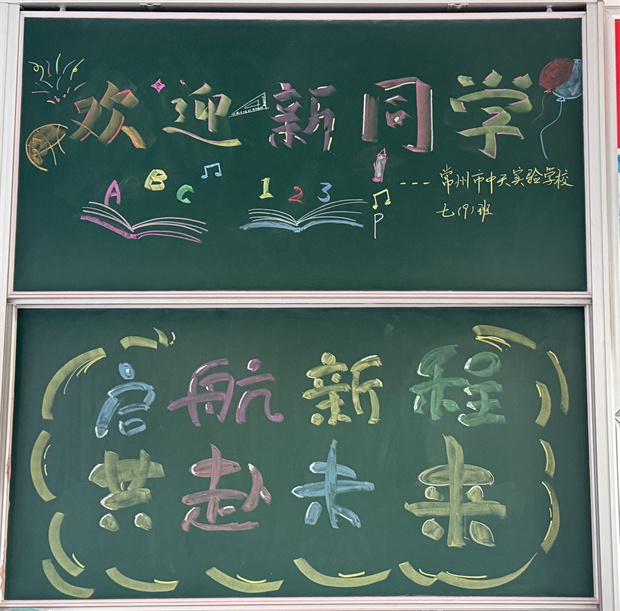 欢迎新同学
A B C 1 2 3
常州市中天实验学校
P
七(9)班
启航新程
共赴未来